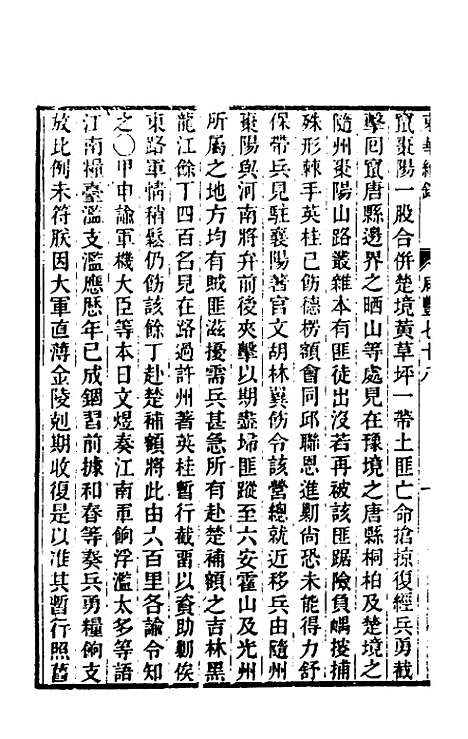 東華續錄　咸豐七十八　一
竄棗陽一股合併楚境黃草坪一帶土匪亡命搶掠復經兵勇截
擊囘竄唐縣邊界之晒山等處見在豫境之唐縣桐柏及楚境之
隨州棗陽山路叢雜本有匪徒出沒若再被該匪踞險負嵎捘捕
殊形棘手英桂已飭德楞額會同邱聯恩進勦尙恐未能得力舒
保帶兵見駐襄陽著官文胡林翼飭令該營總就近移兵由隨州
棗陽與河南將弁前後夾擊以期盡埽匪蹤至六安霍山及光州
所屬之地方均有賊匪滋擾需兵甚急所有赴楚補額之吉林黑
龍江餘丁四百名見在路過許州著英桂暫行截畱以資助勦俟
東路軍情稍鬆仍飭該餘丁赴楚補額將此由六百里各諭令知
之〇甲申諭軍機大臣等本日文煜奏江南軍餉浮濫太多等語
江南糧臺濫支濫應歷年已成錮習前據和春等奏兵勇糧餉支
放比例未符朕因大軍直薄金陵剋期收復是以准其暫行照舊